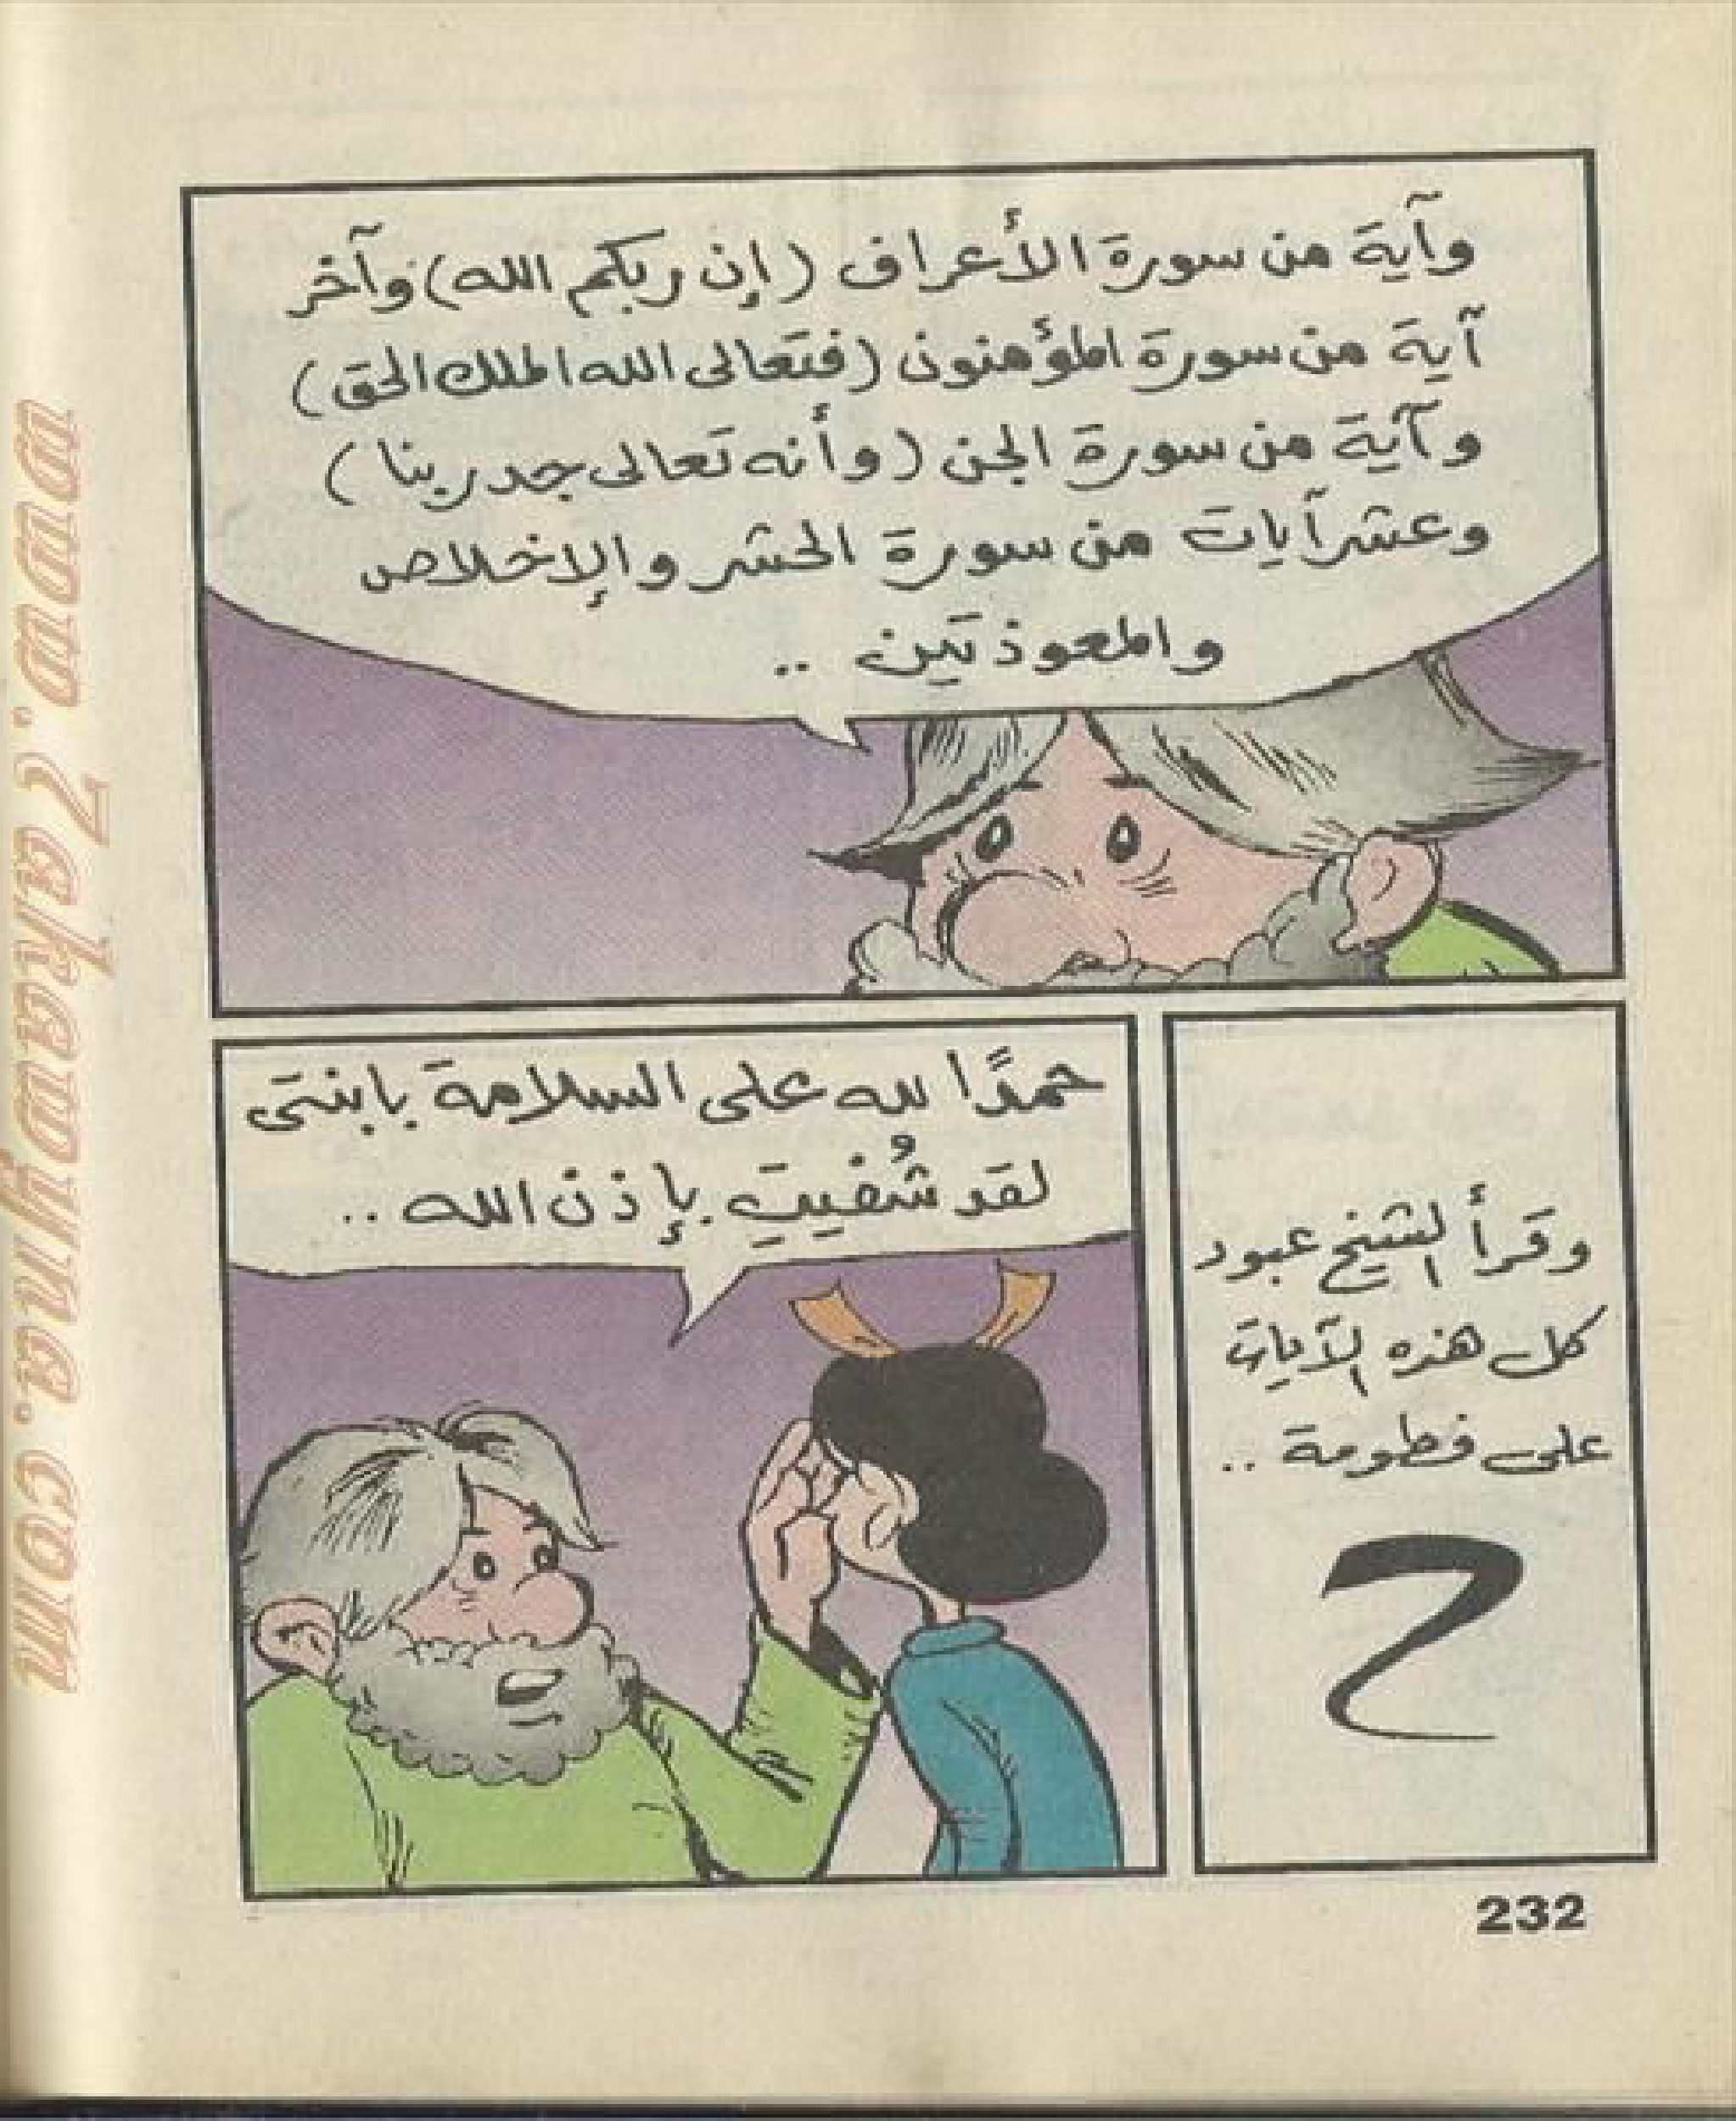 وآية من سورة الأعراف (إن ربكم الله) وآخر
آية من سورة المؤمنون (فتعالى الله الملك الحق)
وآية من سورة الجن (وأنه تعالى جد ربنا)
وعشر آيات من سورة الحشر والإخلاص
والمعوذتين ..
وقرأ الشيخ عبود
كل هذه الآيات
على فطومة ..
حمدًا لله على السلامة يا ابنتى
لقد شُفيتِ بإذن الله ..
232